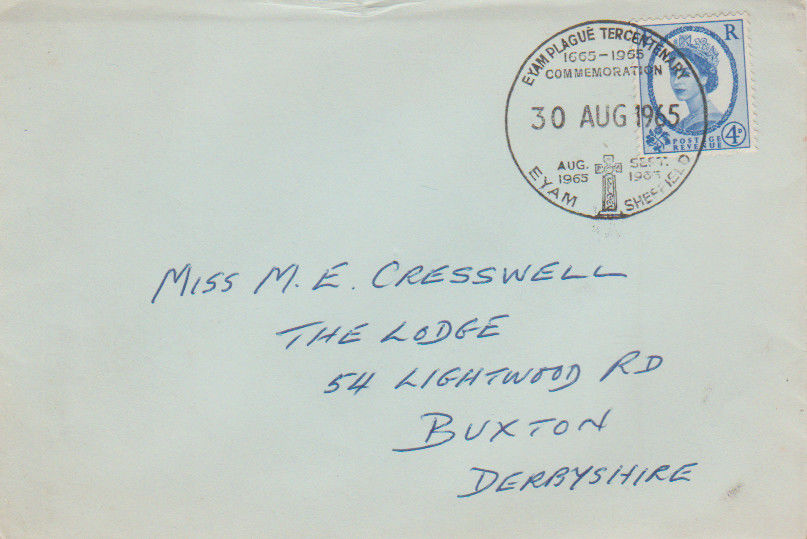 EYAM PLAGUE TERCENTENARY
1665-1965
COMMEMORATION
30 AUG 1965
AUG. SEPT.
1965 1965
EYAM SHEFFIELD
E R
POSTAGE
REVENUE
4D
MISS M. E. CRESSWELL
THE LODGE
54 LIGHTWOOD RD
BUXTON
DERBYSHIRE